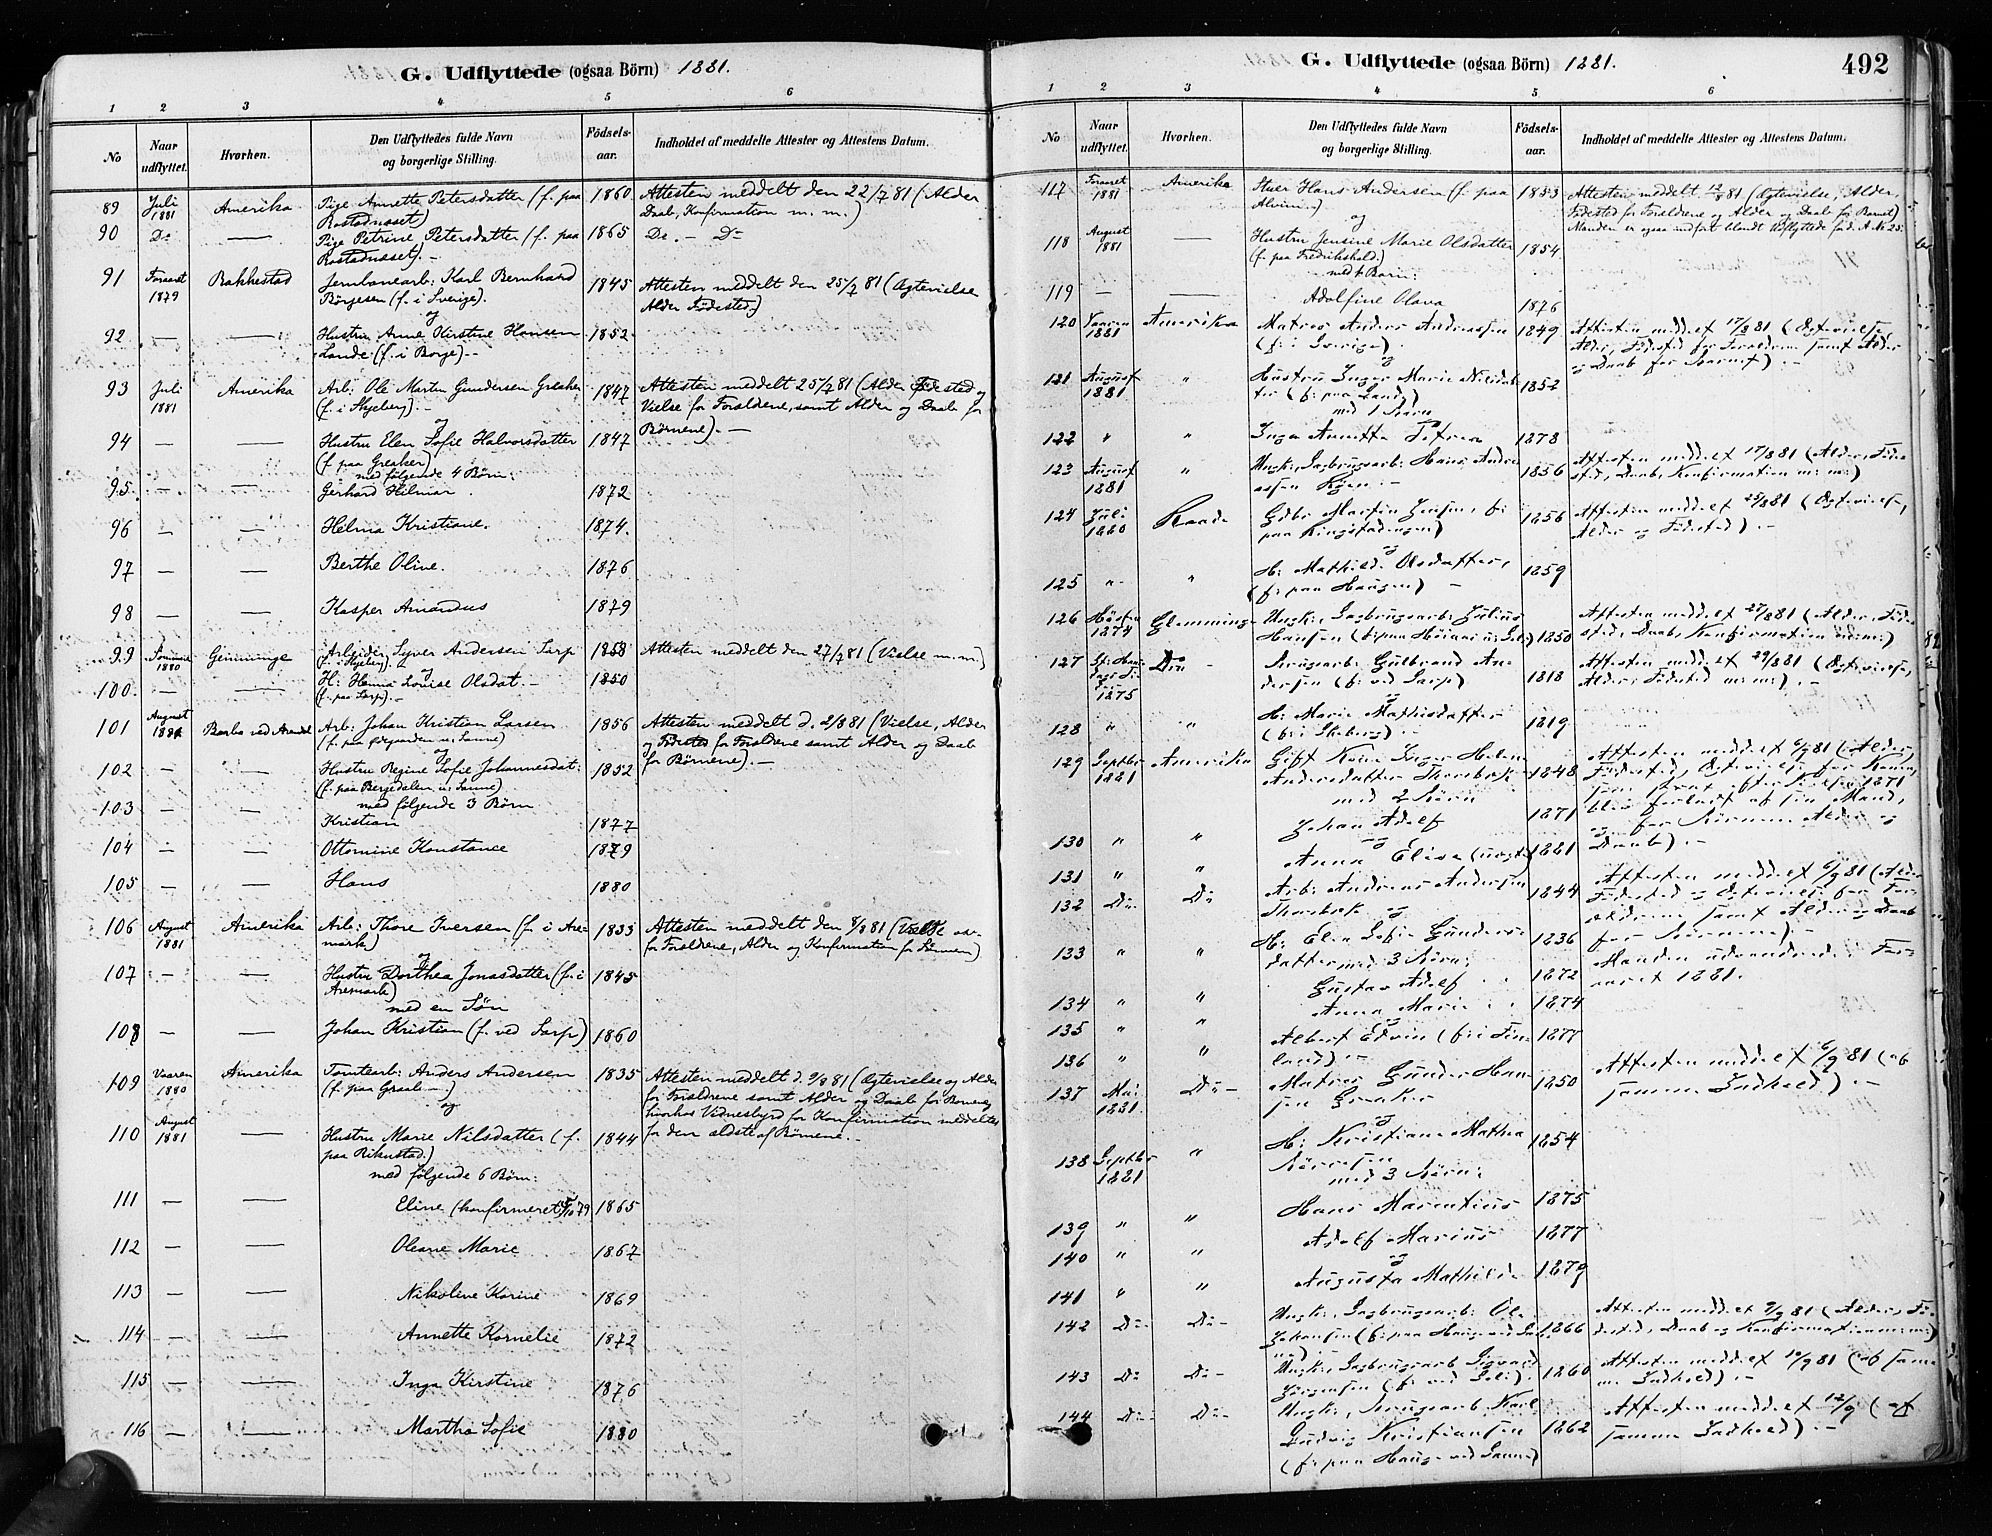 G. Udflyttede (ogsaa Börn) 1881.
1 2 3 4 5 6
No
Naar udflyttet.
Hvorhen.
Den Udflyttedes fulde Navn
og borgerlige Stilling.
Födsels-
aar.
Indholdet af meddelte Attester og Attestens Datum.
89 Juli 1881 Amerika Pige Annette Petersdatter (f. paa 1860 Attesten meddelt den 22/7 81 (Alder
Rostadnæset) Daab, Konfirmation m. m.)
90 Do — Pige Petrine Petersdatter (f. paa 1865 Do. — Do
Rostadnæset). —
91 Foraaret 1879 Bakkestad Jernbanearb: Karl Bernhard 1845 Attesten meddelt den 25/7 81 (Ægtevielse
Börgesen (f. i Sverige). Alder Födested)
og
92 — — Hustru Anne Kirstine Hansen 1852
Lande (f. i Borge). —
93 Juli 1881 Amerika Arb: Ole Martin Gundersen Greaker 1847 Attesten meddelt 25/7 81 (Alder Födested og
(f. i Skjeberg). — Vielse for Forældrene, samt Alder og Daab for
og Börnene). —
94 — — Hustru Elen Sofie Halvorsdatter 1847
(f. paa Greaker)
med følgende 4 Børn:
95. — — Gerhard Hilmar. 1872
96 — — Helma Kristiane. 1874.
97 — — Berthe Oline. 1876
98 — — Kasper Amandus 1879
99 1880 Glemminge Arbeider Syver Andersen Sarp 1858 Attesten meddelt den 27/7 81 (Vielse m. m.)
(f. i Skjeberg). — og
100. — — H: Hanna Louise Olsdat. — 1850
(f. paa Sarp). —
101 August 1881 Barbo ved Arendal Arb: Johan Kristian Larsen 1856 Attesten meddelt d. 2/8 81 (Vielse, Alder
og Födested for Forældrene samt Alder og Daab
og for Børnene). —
102 — — Hustru Regine Sofie Johannesdat: 1852
(f. paa Bergedalen u: Sanne)
med følgende 3 Børn
103 — — Kristian 1877
104 — — Ottomine Konstance 1879
105 — — Hans 1880
106 August 1881 Amerika Arb: Thore Iversen (f. i Are- 1833 Attesten meddelt den 8/8 81 (Vielse
mark) for Forældrene, Alder og Konfirmation for Sönnen)
og
107 — — Hustru Dorthea Jonasdatter (f. i 1845
Aremark)
med en Søn
108 — — Johan Kristian (f. ved Sarp) 1860
109 Vaaren 1880 Amerika Tomtearb: Anders Andersen 1835 Attesten meddelt d. 9/8 81 (Ægtevielse og Alder
(f. paa Graale —) for Forældrene samt Alder og Daab for Börnene,
og hvorhos Vidnesbyrd for Konfirmation meddeltes
110 August 1881 — Hustru Marie Nilsdatter (f. 1844 for den ældste af Børnene. —
paa Rikustad.)
med følgende 6 Børn:
111 — — Eline (konfirmeret 5/10 79 1865
112 — — Oleane Marie 1867
113 — — Nikoline Karine 1869
114 — — Annette Kornelie 1872
115 — — Inga Kirstine 1876
116 — — Martha Sofie 1880
G. Udflyttede (ogsaa Börn) 1881. 492
1 2 3 4 5 6
No
Naar udflyttet.
Hvorhen.
Den Udflyttedes fulde Navn
og borgerlige Stilling.
Födsels-
aar.
Indholdet af meddelte Attester og Attestens Datum.
117 Foraaret 1881 Amerika Hans Andersen (f. paa 1853 Attesten meddelt 12/8 81 (Ægtevielse, Alder,
Alvim —) Födested for Forældrene og Alder og Daab for Barnet)
og Manden er ogsaa indført blandt Udflyttede
118 August 1881 — Hustru Jensine Marie Olsdatter 1854
(f. paa Fredrikshald.)
med 1 Barn:
119 — — Adolfine Olava 1876
120 Vaaren 1881 Amerika Matros Anders Andreassen 1849 Attesten meddelt 17/8 81 (Ægtevielse,
(f: i Sverige). Alder, Födested for Forældrene samt Alder
og og Daab for Barnet) —
121 August 1881 " Hustru Inger Marie Nilsdat- 1852
ter (f: paa Lande)
med 1 Barn
122 " " Inga Annetta Petrea 1878
123 August 1881 " Ungk:, Sagbrugsarb: Hans Andre- 1856 Attesten meddelt 17/8 81 (Alder, Föde-
assen — sted, Daab, Konfirmation m: m:)
124 Juli 1880 Raade Gdbr Martin Jensen, f: 1856 Attesten meddelt 25/8 81 (Ægtevielse,
paa Ringstadengen) Alder og Födested). —
og
125 " " H: Mathilde Olsdatter, 1859
(f: paa Haugen) —
126 Hösten 1874 Glemminge Ungk:, Sagbrugsarb: Julius 1850 Attesten meddelt 27/8 81 (Alder, Föde-
Hansen sted, Daab, Konfirmation m: m:)
127 1875 Do — Brugsarb: Gulbrand An- 1818 Attesten meddelt 29/8 81 (Ægtevielse,
dersen (f: ved Sarp) Alder, Födested m: m:). —
og
128 " " H: Marie Mathisdatter 1819
(f: i Skeberg). —
129 Septbr 1881 Amerika Gift Kone Inger Helene 1848 Attesten meddelt 6/9 81 (Alder,
Andersdatter Födested, Ægtevielse for Konen,
med 2 Börn
130 " " Johan Adolf 1871 blev forladt af sin Mand,
og og for Börnene Alder og
131 " " Anna Elise 1881 Daab). —
132 Do Do Arb: Andreas Andersen 1844 Attesten meddelt 6/9 81 (Alder
og Födested og Ægtevielse for For-
133 " " H: Elen Sofie Gunders- 1836 ældrene samt Alder og Daab
datter med 3 Börn: for Börnene). —
Gustav Adolf 1872 Manden udvandrede i For-
134 " " Anna Marie 1874 aaret 1881.
135 " " og
136 " " Albert Edvin 1877
137 Mai 1881 Do — Matros Gunder Han- 1850 Attesten meddelt 6/9 81 (af
sen Greaker samme Indhold). —
og
138 Septbr 1881 " H: Kristiane Mathea 1854
med 3 Börn:
139 " " Hans Marentius 1875
140 " " Adolf Marius 1877
og
141 " " Augusta Mathilde 1879
142 Do — Do — Ungk:, Sagbrugsarb: Ole 1866 Attesten meddelt 9/9 81 (Alder, Fö-
Johansen (f: paa Hauge ved San- desed, Daab og Konfirmation m: m:)
ne). —
143 Do Do — Ungk:, Sagbrugsarb Sigvard 1860 Attesten meddelt 10/9 81 (af sam-
Jörgensen (f: ved Soli). me Indhold). —
144 Do — Do — Ungk:, Brugsarb. Karl 1862 Attesten meddelt 12/9 (af
Ludvig Kristiansen samme Indhold). —
(f: paa Hauge ved Sanne)